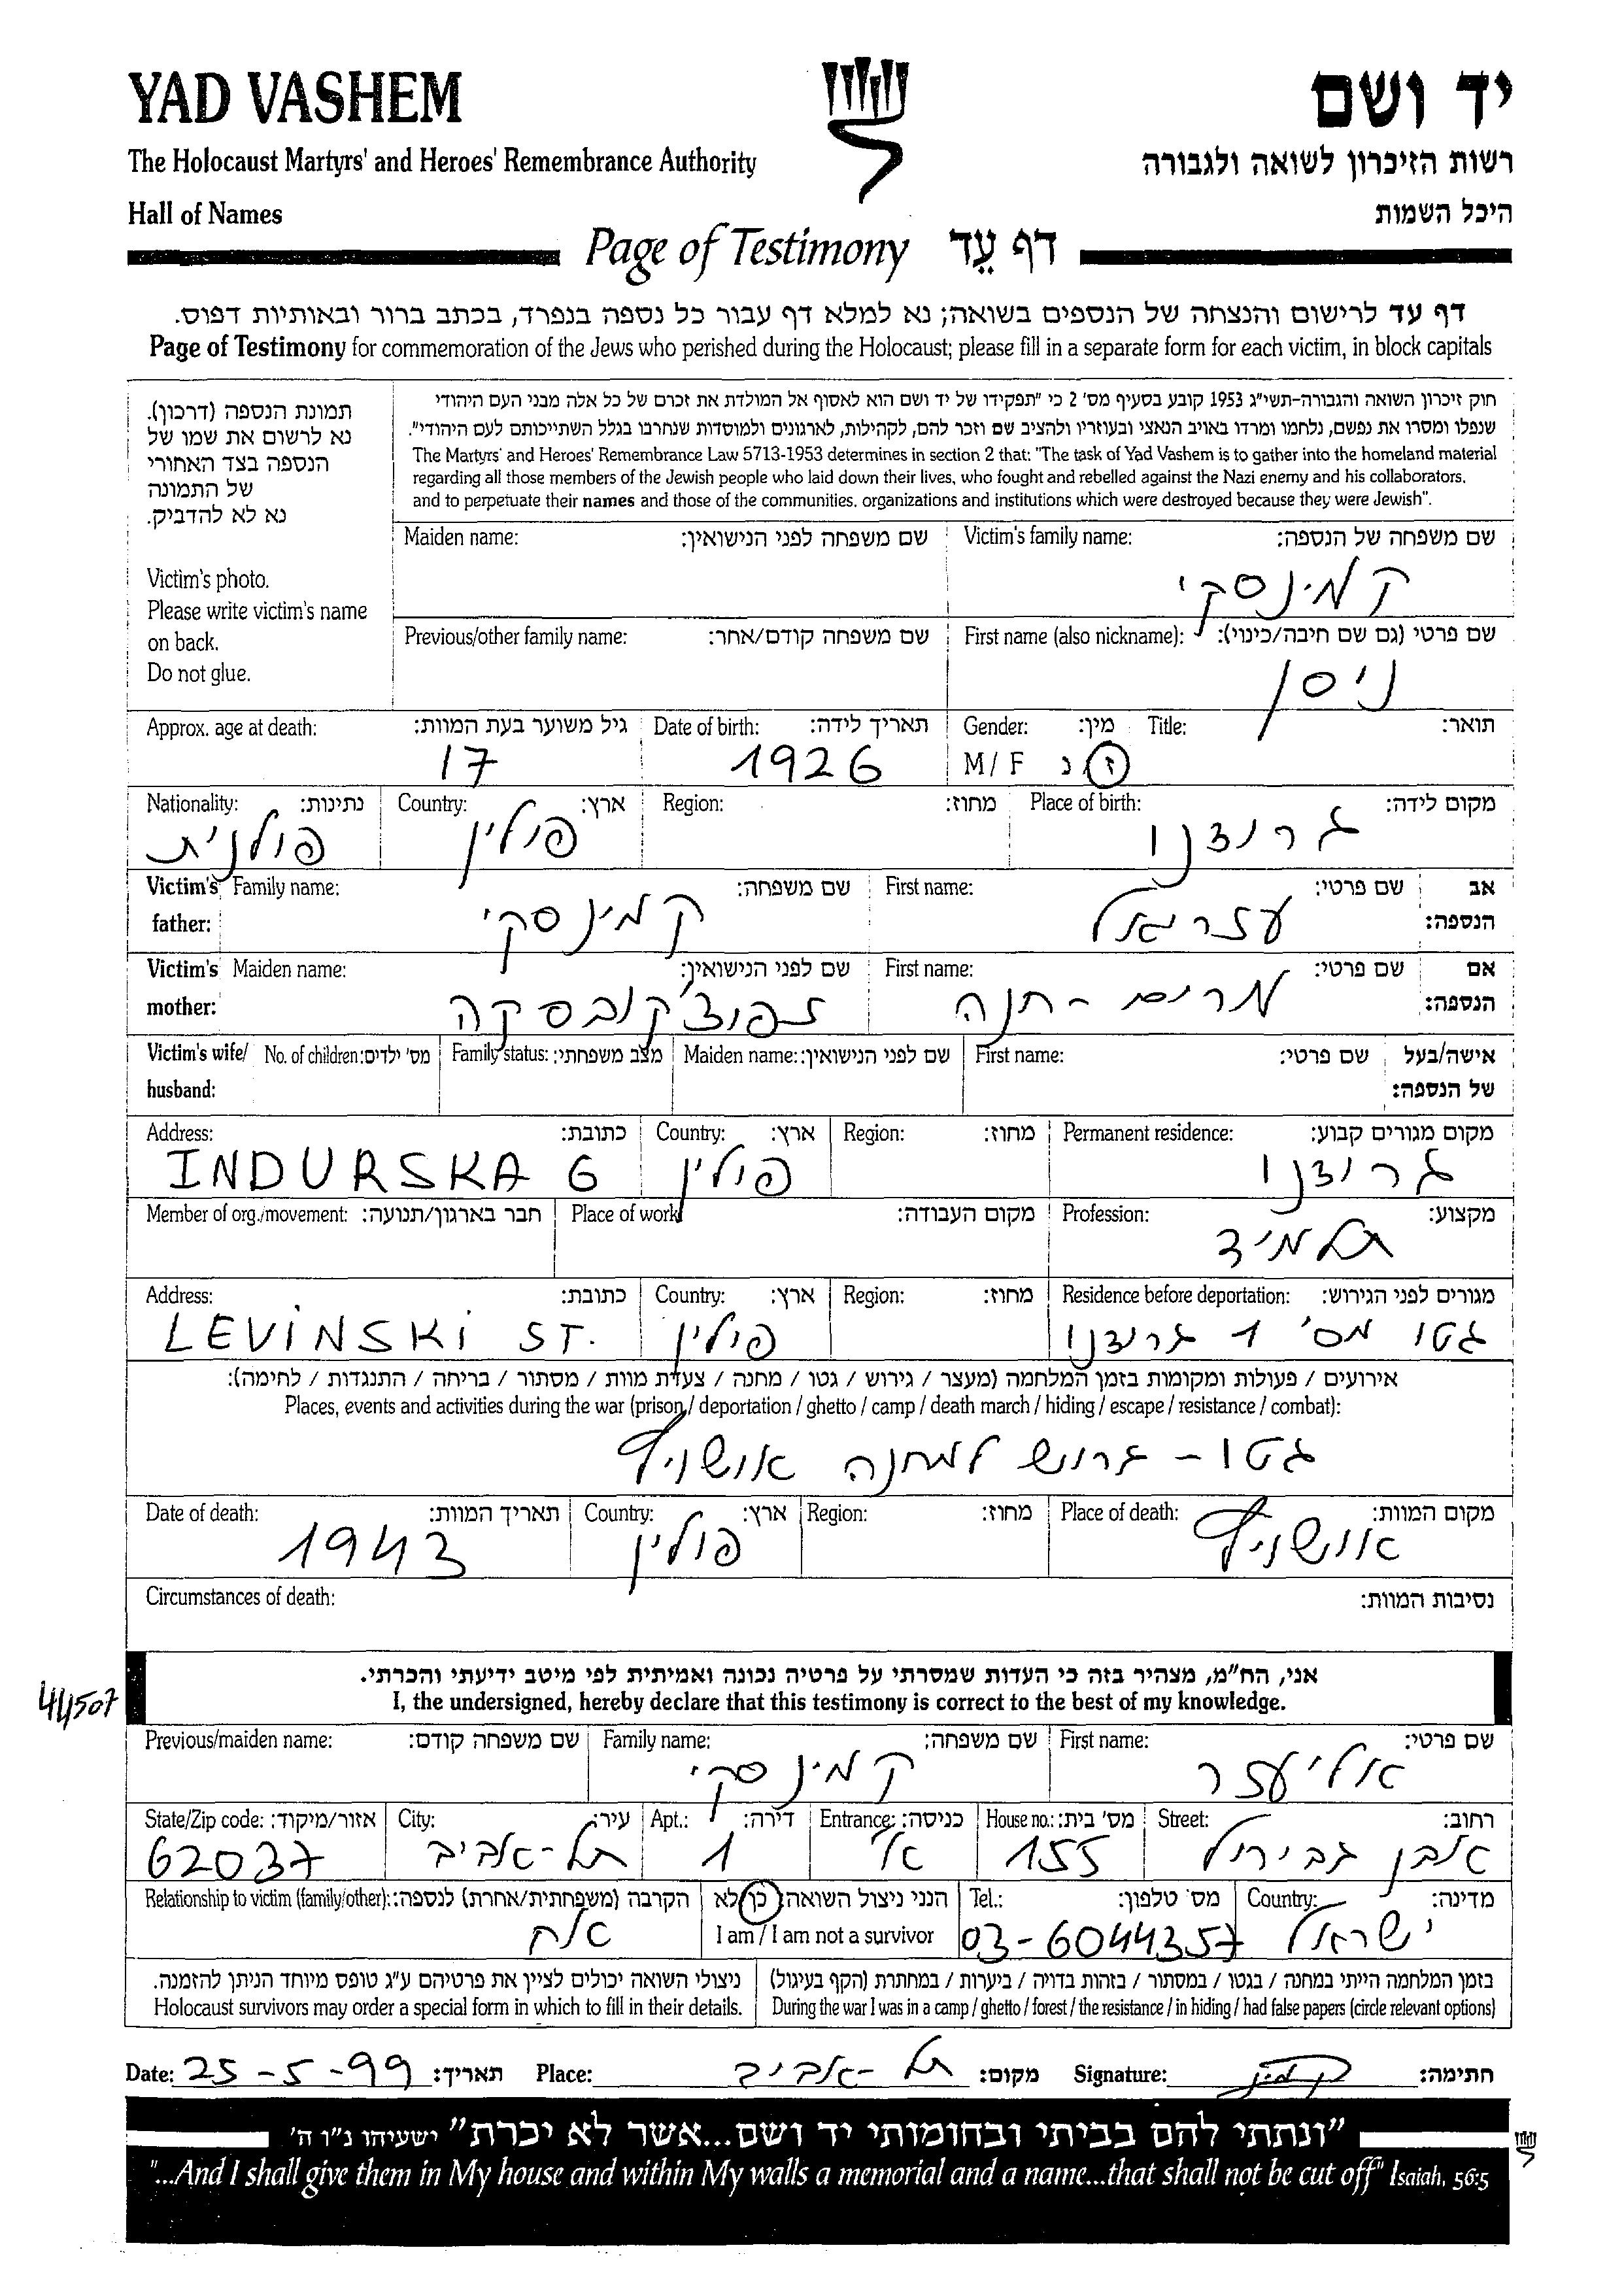 YAD VASHEM
יד ושם
The Holocaust Martyrs' and Heroes' Remembrance Authority
רשות הזיכרון לשואה ולגבורה
Hall of Names
היכל השמות
Page of Testimony דף עֵד
דף עד לרישום והנצחה של הנספים בשואה; נא למלא דף עבור כל נספה בנפרד, בכתב ברור ובאותיות דפוס.
Page of Testimony for commemoration of the Jews who perished during the Holocaust; please fill in a separate form for each victim, in block capitals
תמונת הנספה (דרכון).
נא לרשום את שמו של
הנספה בצד האחורי
של התמונה
נא לא להדביק.
Victim's photo.
Please write victim's name
on back.
Do not glue.
חוק זיכרון השואה והגבורה-תשי"ג 1953 קובע בסעיף מס' 2 כי "תפקידו של יד ושם הוא לאסוף אל המולדת את זכרם של כל אלה מבני העם היהודי
שנפלו ומסרו את נפשם, נלחמו ומרדו באויב הנאצי ובעוזריו ולהציב שם וזכר להם, לקהילות, לארגונים ולמוסדות שנחרבו בגלל השתייכותם לעם היהודי".
The Martyrs' and Heroes' Remembrance Law 5713-1953 determines in section 2 that: "The task of Yad Vashem is to gather into the homeland material
regarding all those members of the Jewish people who laid down their lives, who fought and rebelled against the Nazi enemy and his collaborators,
and to perpetuate their names and those of the communities, organizations and institutions which were destroyed because they were Jewish".
Maiden name: שם משפחה לפני הנישואין: Victim's family name: שם משפחה של הנספה:
קמינסקי
Previous/other family name: שם משפחה קודם/אחר: First name (also nickname): שם פרטי (גם שם חיבה/כינוי):
ניסן
Approx. age at death: גיל משוער בעת המוות: Date of birth: תאריך לידה: Gender: מין: Title: תואר:
17 1926 M/F ז/נ
Nationality: נתינות: Country: ארץ: Region: מחוז: Place of birth: מקום לידה:
פולנית פולין גרודנו
Victim's father: Family name: שם משפחה: First name: שם פרטי: אב הנספה:
קמינסקי עזריאל
Victim's mother: Maiden name: שם לפני הנישואין: First name: שם פרטי: אם הנספה:
זפוצ'קובסקה מרים - חנה
Victim's wife/ husband: No. of children: מס' ילדים: Family status: מצב משפחתי: Maiden name: שם לפני הנישואין: First name: שם פרטי: אישה/בעל של הנספה:
Address: כתובת: Country: ארץ: Region: מחוז: Permanent residence: מקום מגורים קבוע:
INDURSKA 6 פולין גרודנו
Member of org./movement: חבר בארגון/תנועה: Place of work: מקום העבודה: Profession: מקצוע:
תלמיד
Address: כתובת: Country: ארץ: Region: מחוז: Residence before deportation: מגורים לפני הגירוש:
LEVINSKI ST. פולין גטו מס' 1 גרודנו
אירועים / פעולות ומקומות בזמן המלחמה (מעצר / גירוש / גטו / מחנה / צעדת מוות / מסתור / בריחה / התנגדות / לחימה):
Places, events and activities during the war (prison / deportation / ghetto / camp / death march / hiding / escape / resistance / combat):
גטו - גרוש למחנה אושויץ
Date of death: תאריך המוות: Country: ארץ: Region: מחוז: Place of death: מקום המוות:
1943 פולין אושויץ
Circumstances of death: נסיבות המוות:
אני, הח"מ, מצהיר בזה כי העדות שמסרתי על פרטיה נכונה ואמיתית לפי מיטב ידיעתי והכרתי.
I, the undersigned, hereby declare that this testimony is correct to the best of my knowledge.
44507
Previous/maiden name: שם משפחה קודם: Family name: שם משפחה: First name: שם פרטי:
קמינסקי אליעזר
State/Zip code: אזור/מיקוד: City: עיר: Apt.: דירה: Entrance: כניסה: House no.: מס' בית: Street: רחוב:
62037 תל-אביב 1 א' 155 אבן גבירול
Relationship to victim (family/other): הקרבה (משפחתית/אחרת) לנספה: הנני ניצול השואה: כן/לא Tel.: מס' טלפון: Country: מדינה:
אח I am / I am not a survivor 03-6044357 ישראל
ניצולי השואה יכולים לציין את פרטיהם ע"ג טופס מיוחד הניתן להזמנה.
Holocaust survivors may order a special form in which to fill in their details.
בזמן המלחמה הייתי במחנה / בגטו / במסתור / בזהות בדויה / ביערות / במחתרת (הקף בעיגול)
During the war I was in a camp / ghetto / forest / the resistance / in hiding / had false papers (circle relevant options)
Date: 25-5-99 תאריך: Place: תל-אביב מקום: Signature: קמינ חתימה:
"ונתתי להם בביתי ובחומותי יד ושם...אשר לא יכרת" ישעיהו נ"ו ה'
"...And I shall give them in My house and within My walls a memorial and a name...that shall not be cut off" Isaiah, 56:5